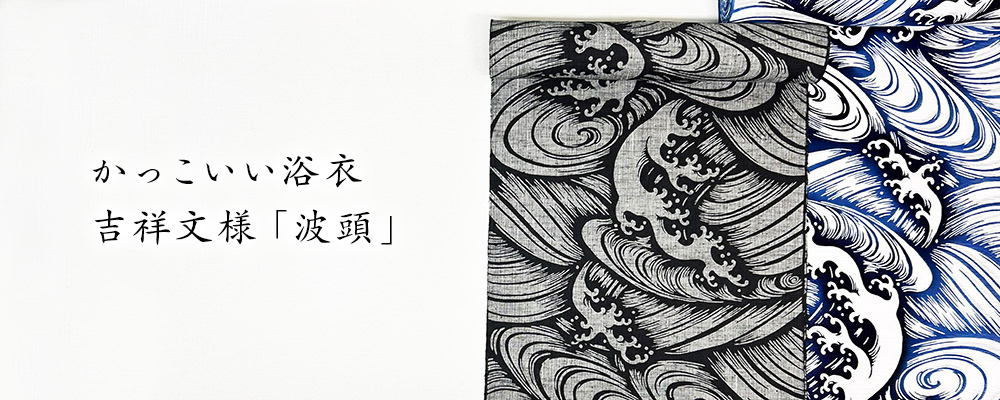 かっこいい浴衣
吉祥文様「波頭」